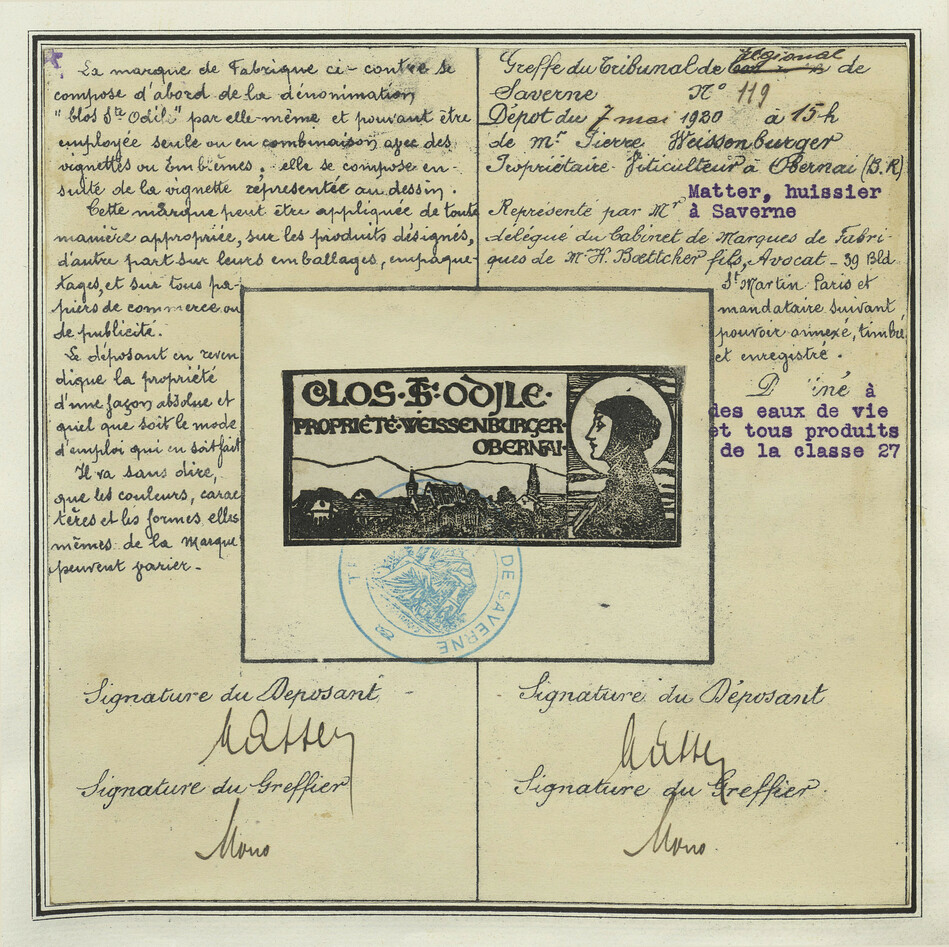 La marque de Fabrique ci-contre se
compose d'abord de la dénomination
"Clos Ste Odile" par elle-même et pouvant être
employée seule ou en combinaison avec des
vignettes ou Emblèmes; elle se compose en-
suite de la vignette représentée au dessin.
Cette marque peut être appliquée de toute
manière appropriée, sur les produits désignés,
d'autre part sur leurs emballages, empaque-
tages, et sur tous pa-
piers de commerce ou
de publicité.
Le déposant en reven
dique la propriété
d'une façon absolue et
quel que soit le mode
d'emploi qui en soit fait
Il va sans dire,
que les couleurs, carac
tères et les formes elles
mêmes de la Marque
peuvent varier -
Greffe du Tribunal de régional de
Saverne No 119
Dépôt du 7 mai 1920 à 15h
de Mr Pierre Weissenburger
Propriétaire-Viticulteur à Obernai (B.R)
Représenté par Mr Matter, huissier
à Saverne
délégué du Cabinet de Marques de Fabri-
ques de Mr H. Bœttcher fils, Avocat - 39 Bld
St Martin Paris et
mandataire suivant
pouvoir annexé, timbré
et enregistré.
à
des eaux de vie
et tous produits
de la classe 27
CLOS·STE·ODJLE·
PROPRIÉTÉ·WEISSENBURGER·
OBERNAI·
DE SAVERNE
Signature du Déposant
Matter
Signature du Greffier
Signature du Déposant
Matter
Signature du Greffier